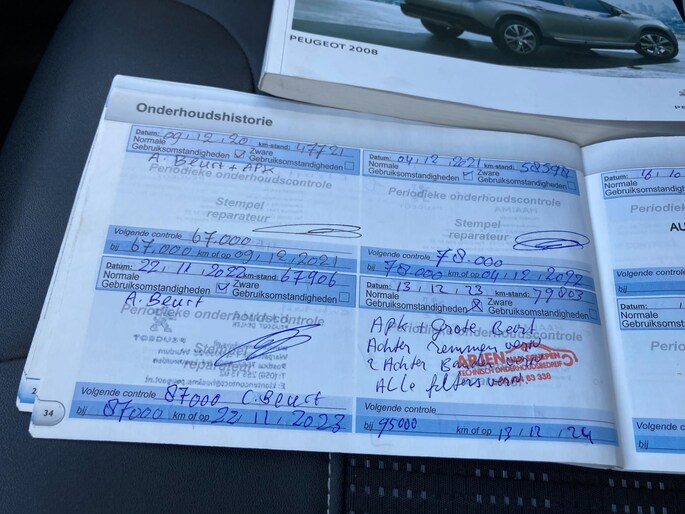 PEUGEOT 2008
Onderhoudshistorie
Datum: 09,12,20 km-stand: 47721
Normale Gebruiksomstandigheden Zware Gebruiksomstandigheden
A. Beurt + APK
Periodieke onderhoudscontrole
Stempel reparateur
Volgende controle 67.000
bij 67.000 km of op 09,12,2021
Datum: 04,12,2021 km-stand: 58598
Normale Gebruiksomstandigheden Zware Gebruiksomstandigheden
Periodieke onderhoudscontrole
Stempel reparateur
Volgende controle 78.000
bij 78.000 km of op 04,12,2022
Datum: 22,11,2022 km-stand: 67906
Normale Gebruiksomstandigheden Zware Gebruiksomstandigheden
A. Beurt
Periodieke onderhoudscontrole
Stempel reparateur
Volgende controle 87000 C. Beurt
bij 87000 km of op 22,11,2023
Datum: 13,12,23 km-stand: 79803
Normale Gebruiksomstandigheden Zware Gebruiksomstandigheden
APK Grote Beurt
Achter remmen verv
2 Achter
Alle filters verv
TECHNISCH ONDERHOUDSBEDRIJF
Volgende controle
bij 95000 km of op 13,12,24
Datum:
Normale
Gebruiksomstandigheden
Periodieke
AU
Volgende controle
bij
Datum:
Normale
Gebruiksomstandigheden
Periodiek
Volgende controle
bij
2
34